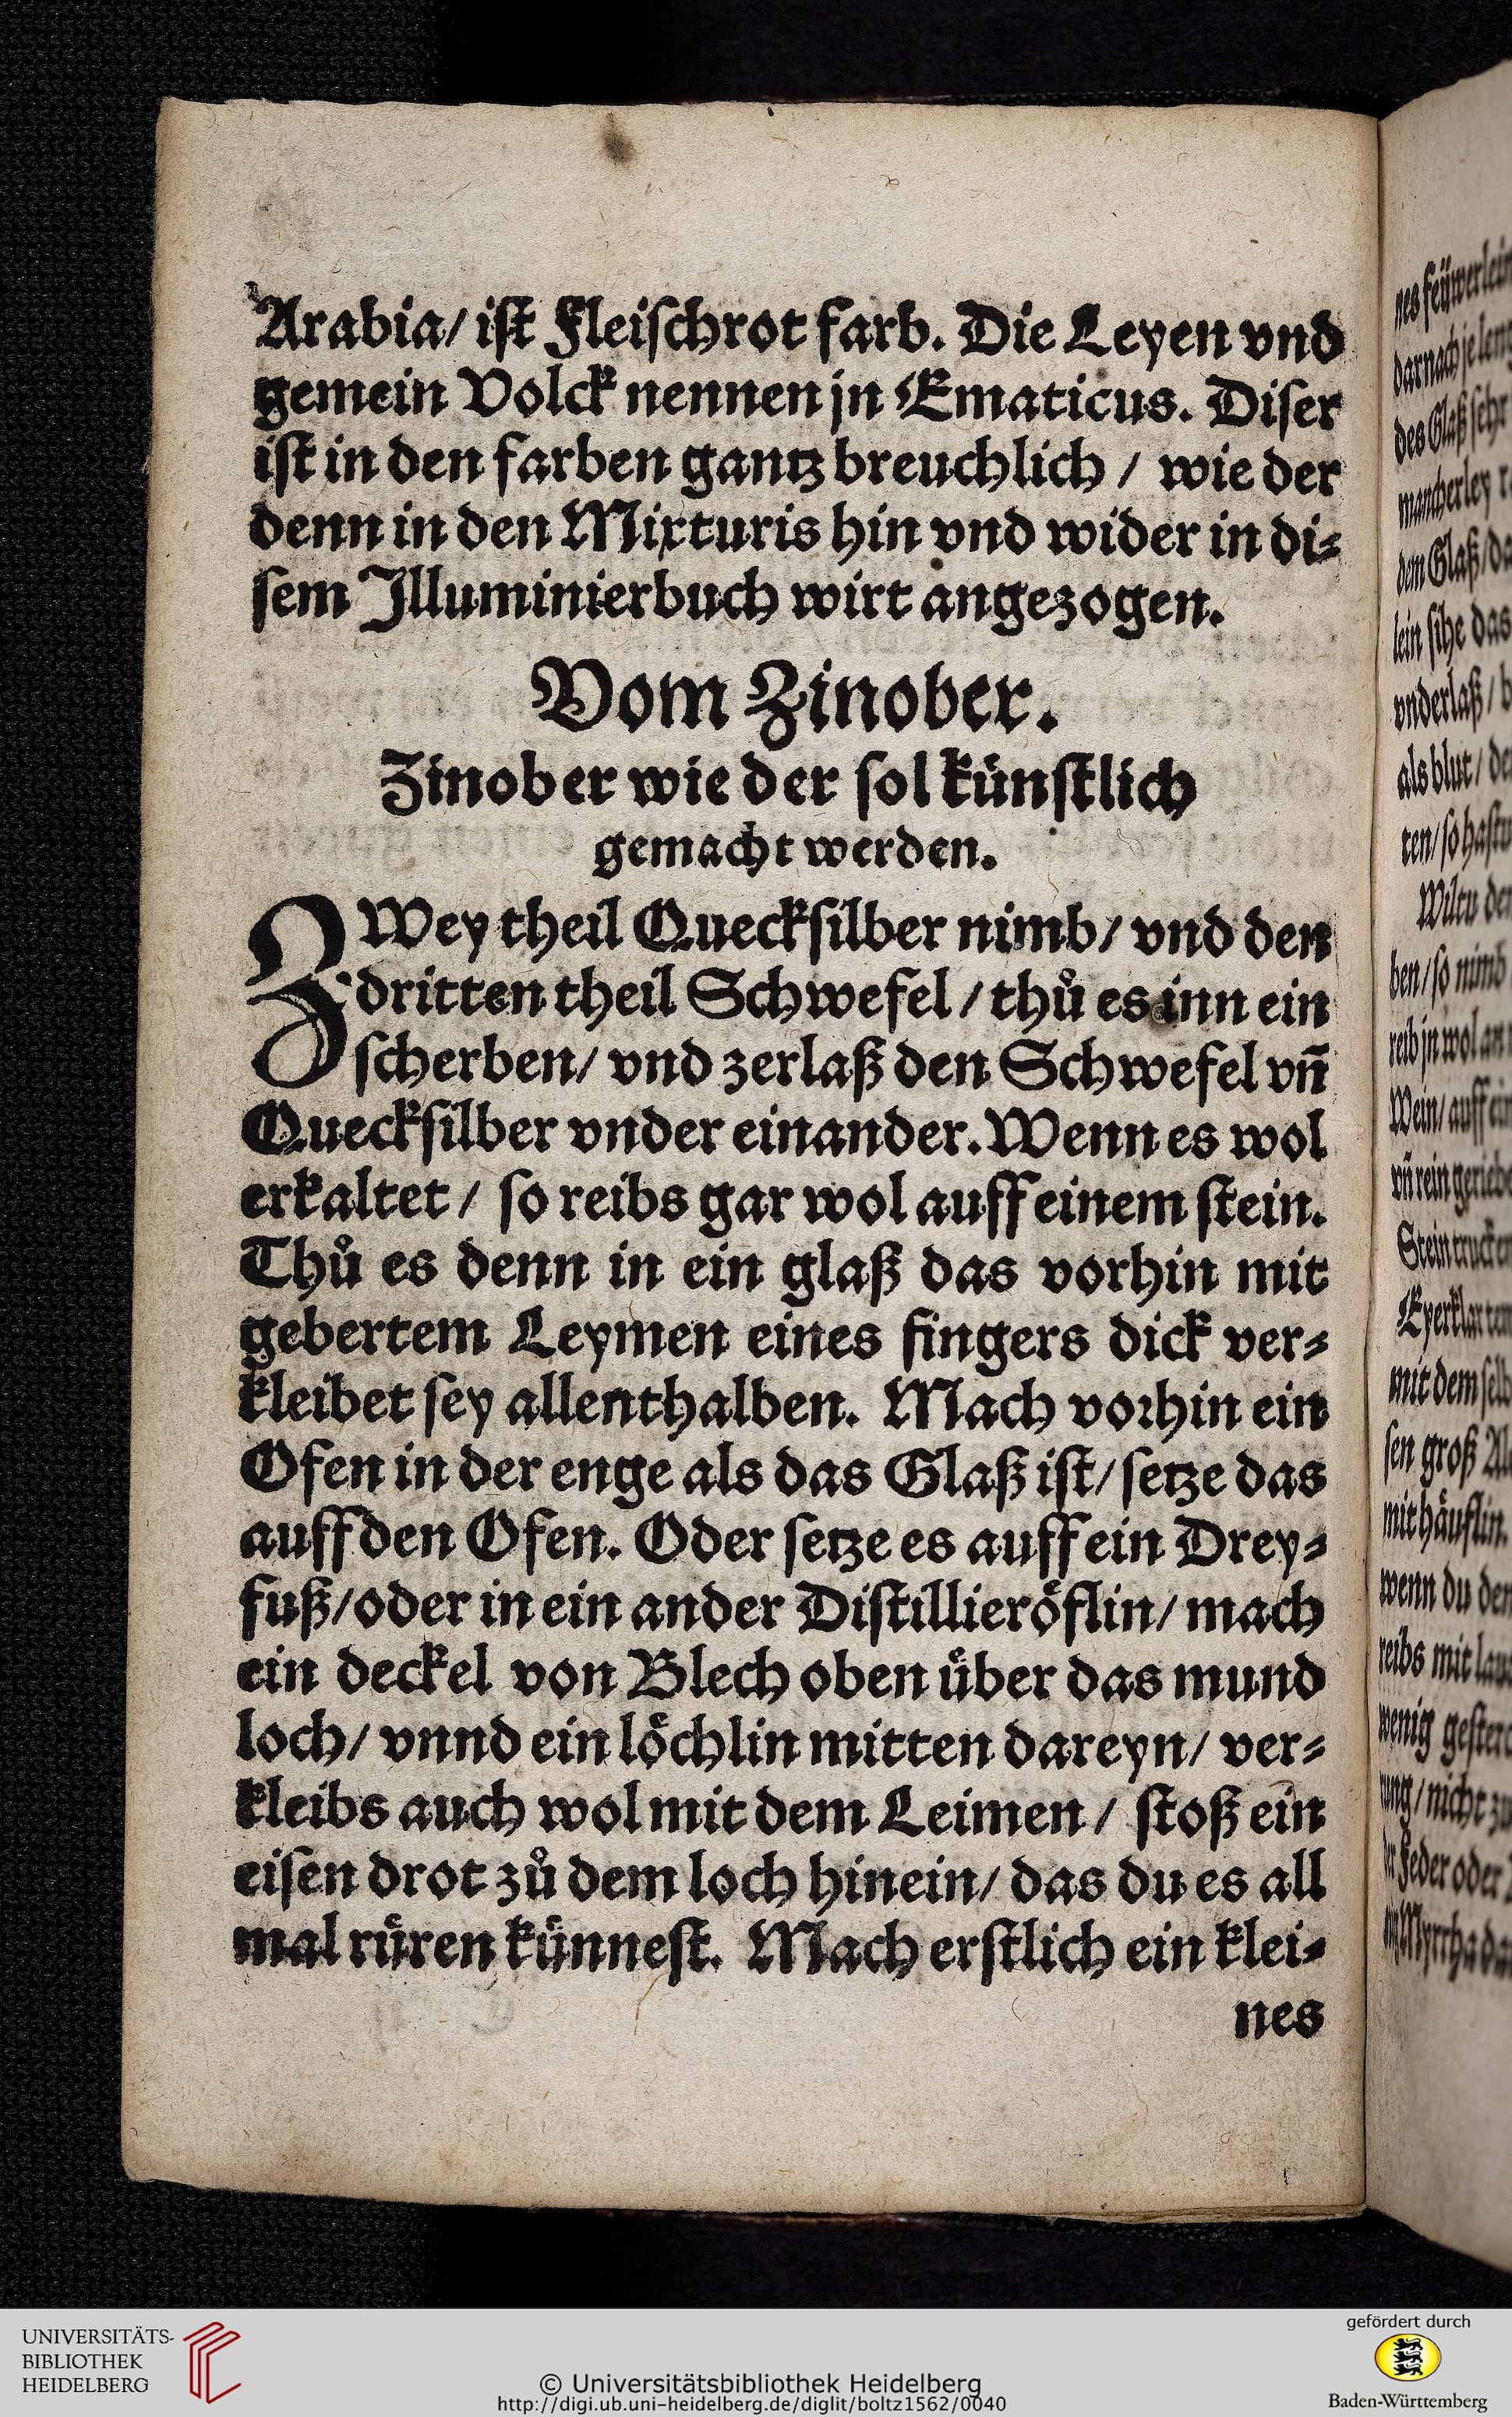 Arabia/ ist Fleischrot farb. Die Leyen vnd
gemein Volck nennen jn Ematicus. Diser
ist in den farben gantz breuchlich / wie der
denn in den Mixturis hin vnd wider in di⸗
sem Illuminierbuch wirt angezogen.
Vom Zinober.
Zinober wie der sol künstlich
gemacht werden.
ZWey theil Quecksilber nimb/ vnd den
dritten theil Schwefel / thů es inn ein
scherben/ vnd zerlaß den Schwefel vñ
Quecksilber vnder einander. Wenn es wol
erkaltet / so reibs gar wol auff einem stein.
Thů es denn in ein glaß das vorhin mit
gebertem Leymen eines fingers dick ver⸗
kleibet sey allenthalben. Mach vorhin ein
Ofen in der enge als das Glaß ist/ setze das
auff den Ofen. Oder setze es auff ein Drey⸗
fuß/oder in ein ander Distillieröflin/ mach
ein deckel von Blech oben über das mund
loch/ vnnd ein löchlin mitten dareyn/ ver⸗
kleibs auch wol mit dem Leimen / stoß ein
eisen drot zů dem loch hinein/ das du es all
mal rüren künnest. Mach erstlich ein klei⸗
nes
nes feüwerlein
darnach je leng
des Glaß sehr
mancherley
dem Glaß/
lein sihe das
vnderlaß /
als blut/
ten/ so hastu
Wiltu
ben / so nimb
reib jn wol an
Wein/ auff
vñ rein geriebe
Stein trucken
Eyerklar
mit dem selb
sen groß
mit häuflin.
wenn du den
reibs mit
wenig
nicht zu
Feder oder
Myrrha
UNIVERSITÄTS-
BIBLIOTHEK
HEIDELBERG
© Universitätsbibliothek Heidelberg
http://digi.ub.uni-heidelberg.de/diglit/boltz1562/0040
gefördert durch
Baden-Württemberg